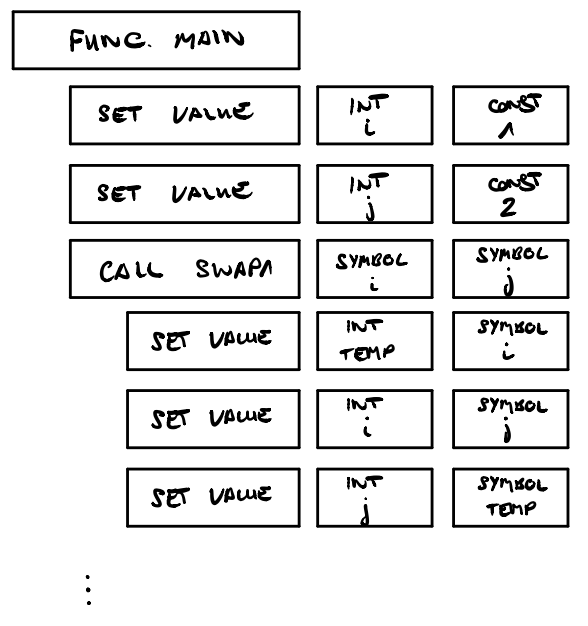 FUNC. MAIN
SET VALUE INT i CONST 1
SET VALUE INT j CONST 2
CALL SWAP1 SYMBOL i SYMBOL j
SET VALUE INT TEMP SYMBOL i
SET VALUE INT i SYMBOL j
SET VALUE INT j SYMBOL TEMP
⋮